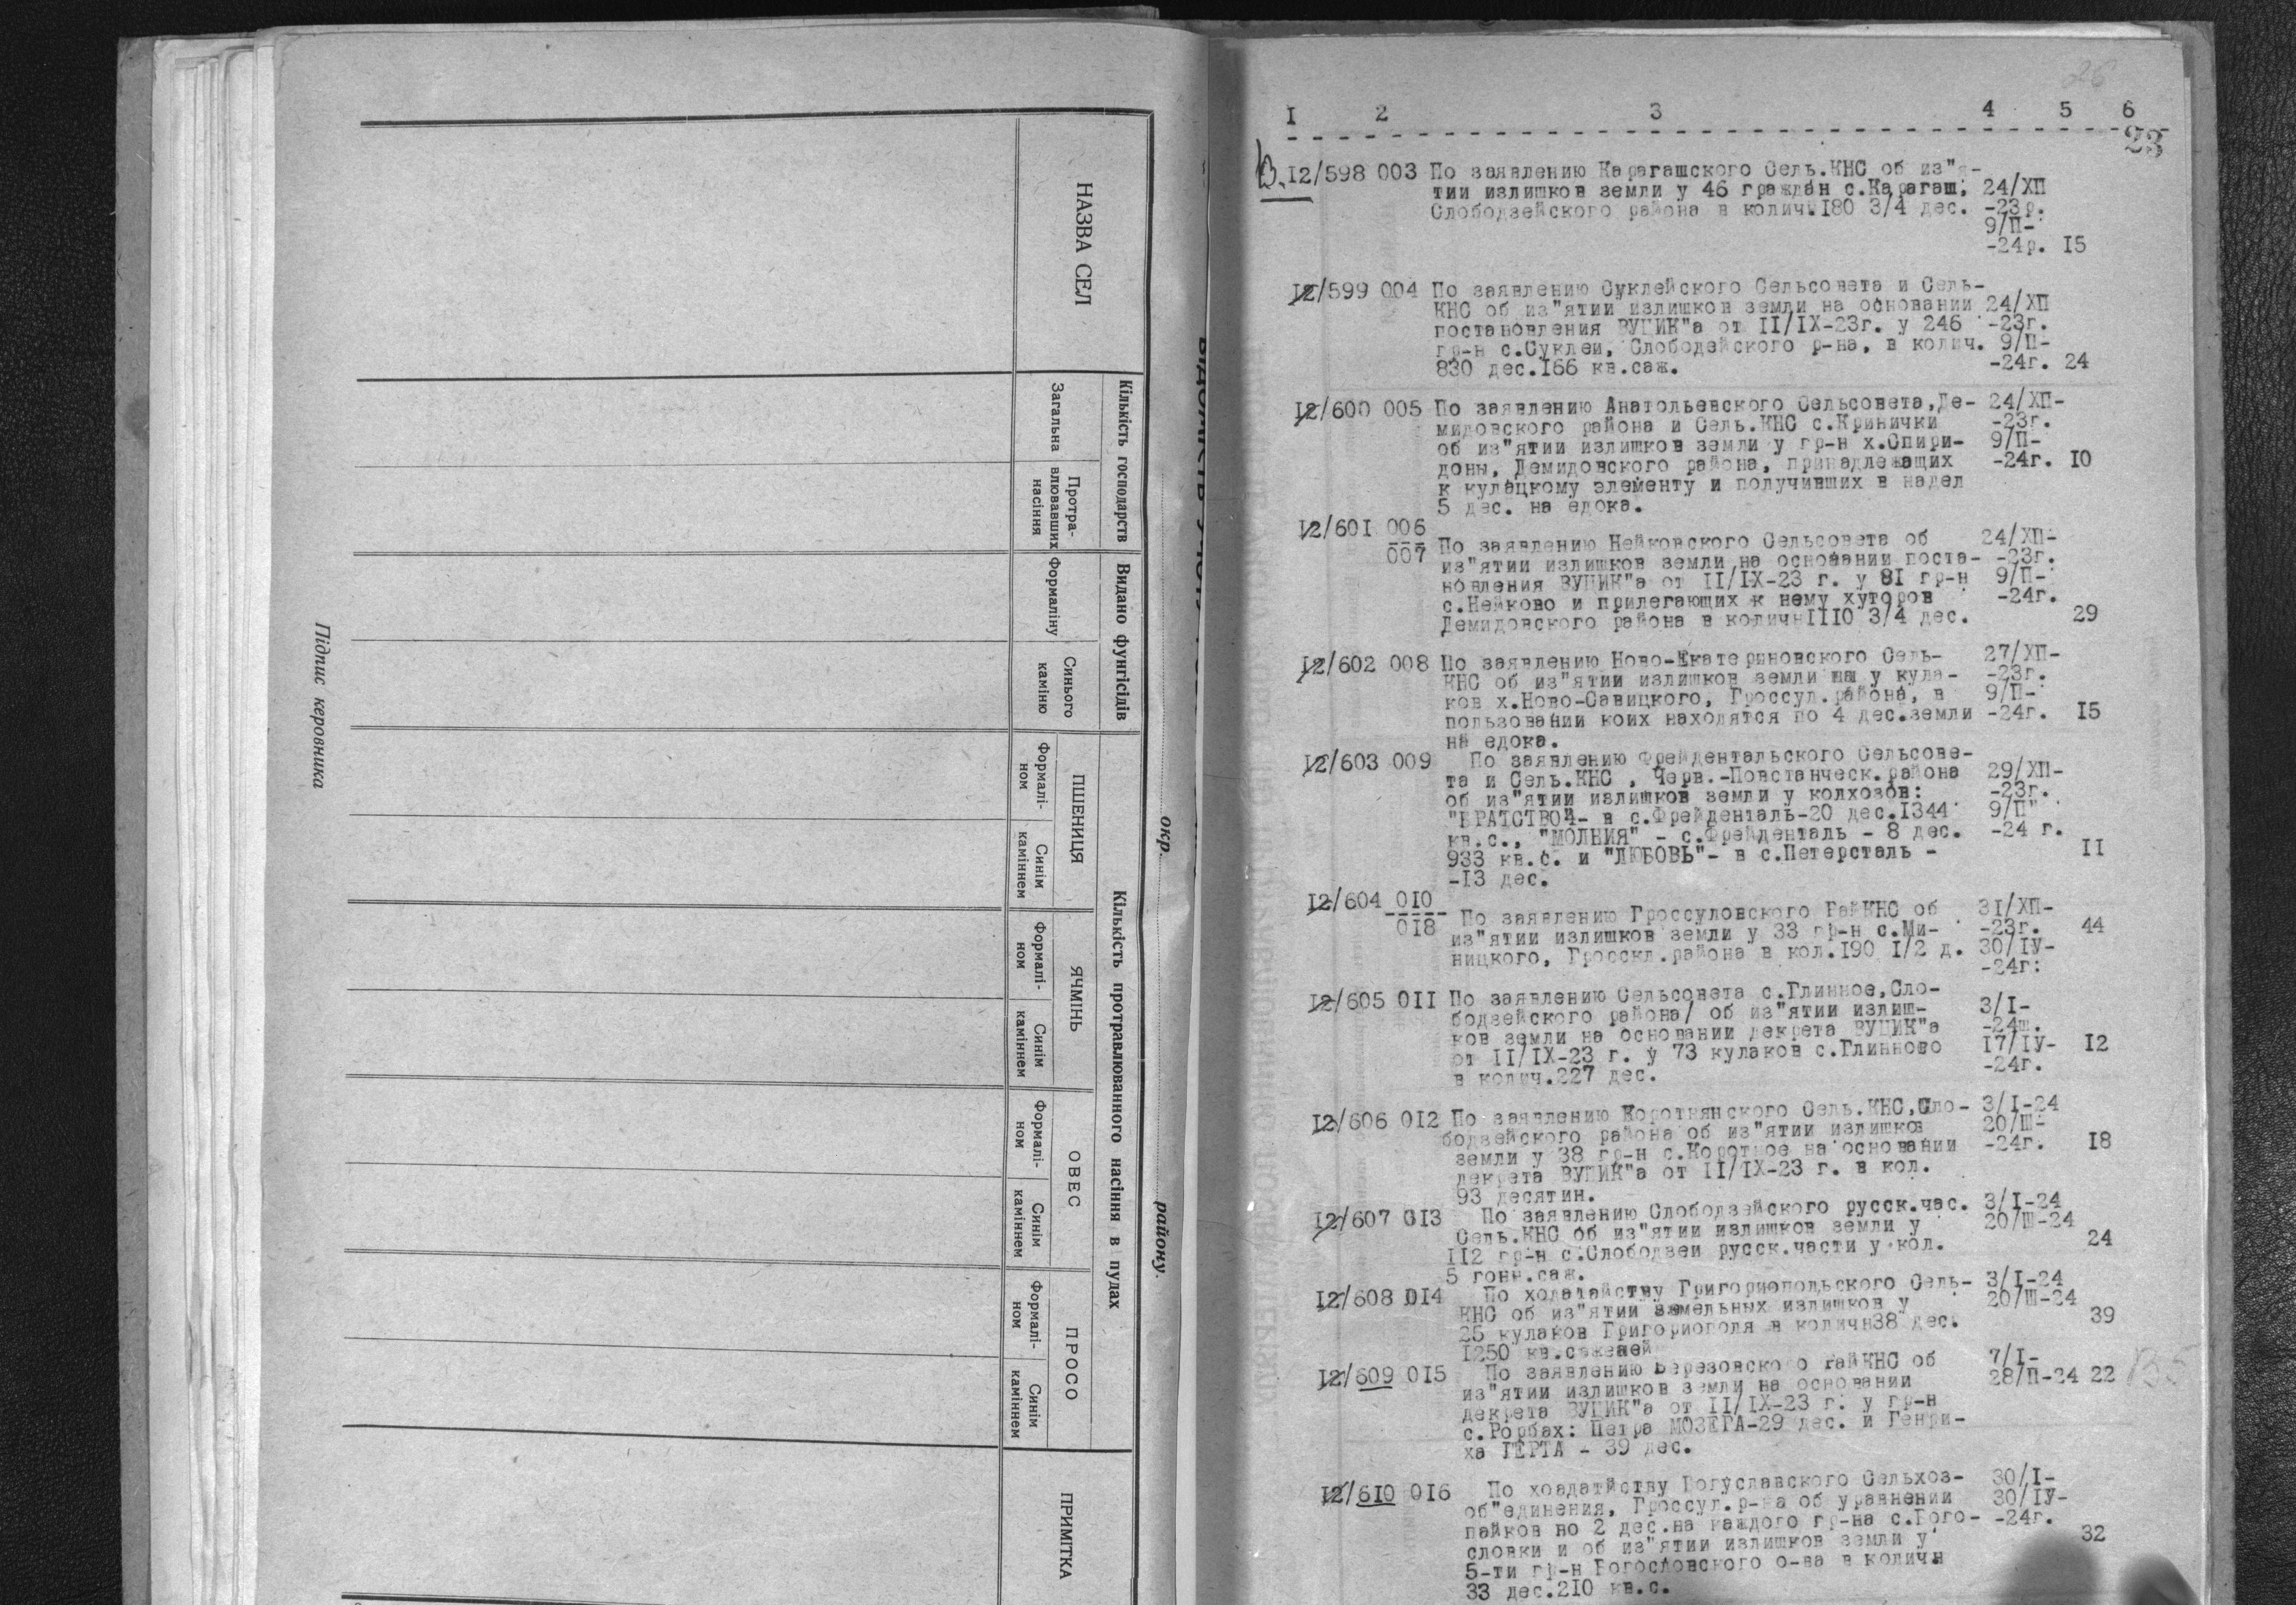 НАЗВА СЕЛ
Кількість господарств
Загальна
Протра-
влювавших
насіння
Видано фунгісідів
Формаліну
Синього
каміню
Кількість протравлюванного насіння в пудах
ПШЕНИЦЯ
Формалі-
ном
Синім
каміннем
ЯЧМІНЬ
Формалі-
ном
Синім
каміннем
ОВЕС
Формалі-
ном
Синім
каміннем
ПРОСО
Формалі-
ном
Синім
каміннем
ПРИМІТКА
окр.
району.
Підпис керовника
26
I 2 3 4 5 6
23
I2/598 003 По заявлению Карагашского Сель.КНС об из"я-
тии излишков земли у 46 граждан с.Карагаш, 24/ХП
Слободзейского района в колич.I80 3/4 дес. -23р.
9/П-
-24р. I5
I2/599 004 По заявлению Суклейского Сельсовета и Сель-
КНС об из"ятии излишков земли на основании 24/ХП
постановления ВУЦИК"а от II/IX-23г. у 246 -23г.
гр-н с.Суклеи, Слободзейского р-на, в колич. 9/П-
830 дес.I66 кв.саж. -24г. 24
I2/600 005 По заявлению Анатольевского Сельсовета,Де- 24/ХП-
мидовского района и Сель.КНС с.Кринички -23г.
об из"ятии излишков земли у гр-н х.Спири- 9/П-
доны, Демидовского района, принадлежащих -24г. I0
к кулацкому элементу и получивших в надел
5 дес. на едока.
I2/60I 006
007 По заявлению Нейковского Сельсовета об 24/ХП-
из"ятии излишков земли на основании поста- -23г.
новления ВУЦИК"а от II/IX-23 г. у 8I гр-н 9/П-
с.Нейково и прилегающих к нему хуторов -24г.
Демидовского района в количнIII0 3/4 дес. 29
I2/602 008 По заявлению Ново-Екатериновского Сель- 27/ХП-
КНС об из"ятии излишков земли наш у кула- -23г.
ков х.Ново-Савицкого, Гроссул.района, в 9/П-
пользовании коих находятся по 4 дес.земли -24г. I5
на едока.
I2/603 009 По заявлению Фрейдентальского Сельсове-
та и Сель.КНС , Черв.-Повстанческ.района 29/ХП-
об из"ятии излишков земли у колхозов: -23г.
"БРАТСТВО"- в с.Фрейденталь-20 дес.I344 9/П"
кв.с., "МОЛНИЯ" - с.Фрейденталь - 8 дес. -24 г.
933 кв.с. и "ЛЮБОВЬ"- в с.Петерсталь - II
-I3 дес.
I2/604 0I0
0I8 По заявлению Гроссуловского РайКНС об 3I/ХП-
из"ятии излишков земли у 33 гр-н с.Ми- -23г. 44
ницкого, Гросскл.района в кол.I90 I/2 д. 30/IУ-
-24г:
I2/605 0II По заявлению Сельсовета с.Глинное,Сло-
бодзейского района/ об из"ятии излиш- 3/I-
ков земли на основании декрета ВУЦИК"а -24ш.
от II/IX-23 г. у 73 кулаков с.Глинново I7/IУ- I2
в колич.227 дес. -24г.
I2/606 0I2 По заявлению Коротнянского Сель.КНС,Сло- 3/I-24
бодзейского района об из"ятии излишков 20/Ш-
земли у 38 гр-н с.Коротное на основании -24г. I8
декрета ВУЦИК"а от II/IX-23 г. в кол.
93 десятин.
I2/607 0I3 По заявлению Слободзейского русск.час. 3/I-24
Сель.КНС об из"ятии излишков земли у 20/Ш-24
II2 гр-н с.Слободзеи русск.части у кол. 24
5 гонн.саж.
I2/608 0I4 По ходатайству Григориопольского Сель- 3/I-24
КНС об из"ятии земельных излишков у 20/Ш-24
25 кулаков Григориополя в количн38 дес. 39
I250 кв.саженей
I2/609 0I5 По заявлению Березовского РайКНС об 7/I-
из"ятии излишков земли на основании 28/П-24 22
декрета ВУЦИК"а от II/IX-23 г. у гр-н
с.Рорбах: Петра МОЗЕРА-29 дес. и Генри-
ха ГЕРТА - 39 дес.
I2/6I0 0I6 По хоадатйству Богуславского Сельхоз- 30/I-
об"единения, Гроссул.р-на об уравнении 30/IУ-
пайков по 2 дес.на каждого гр-на с.Бого- -24г.
словки и об из"ятии излишков земли у 32
5-ти гр-н Богословского о-ва в количн
33 дес.2I0 кв.с.